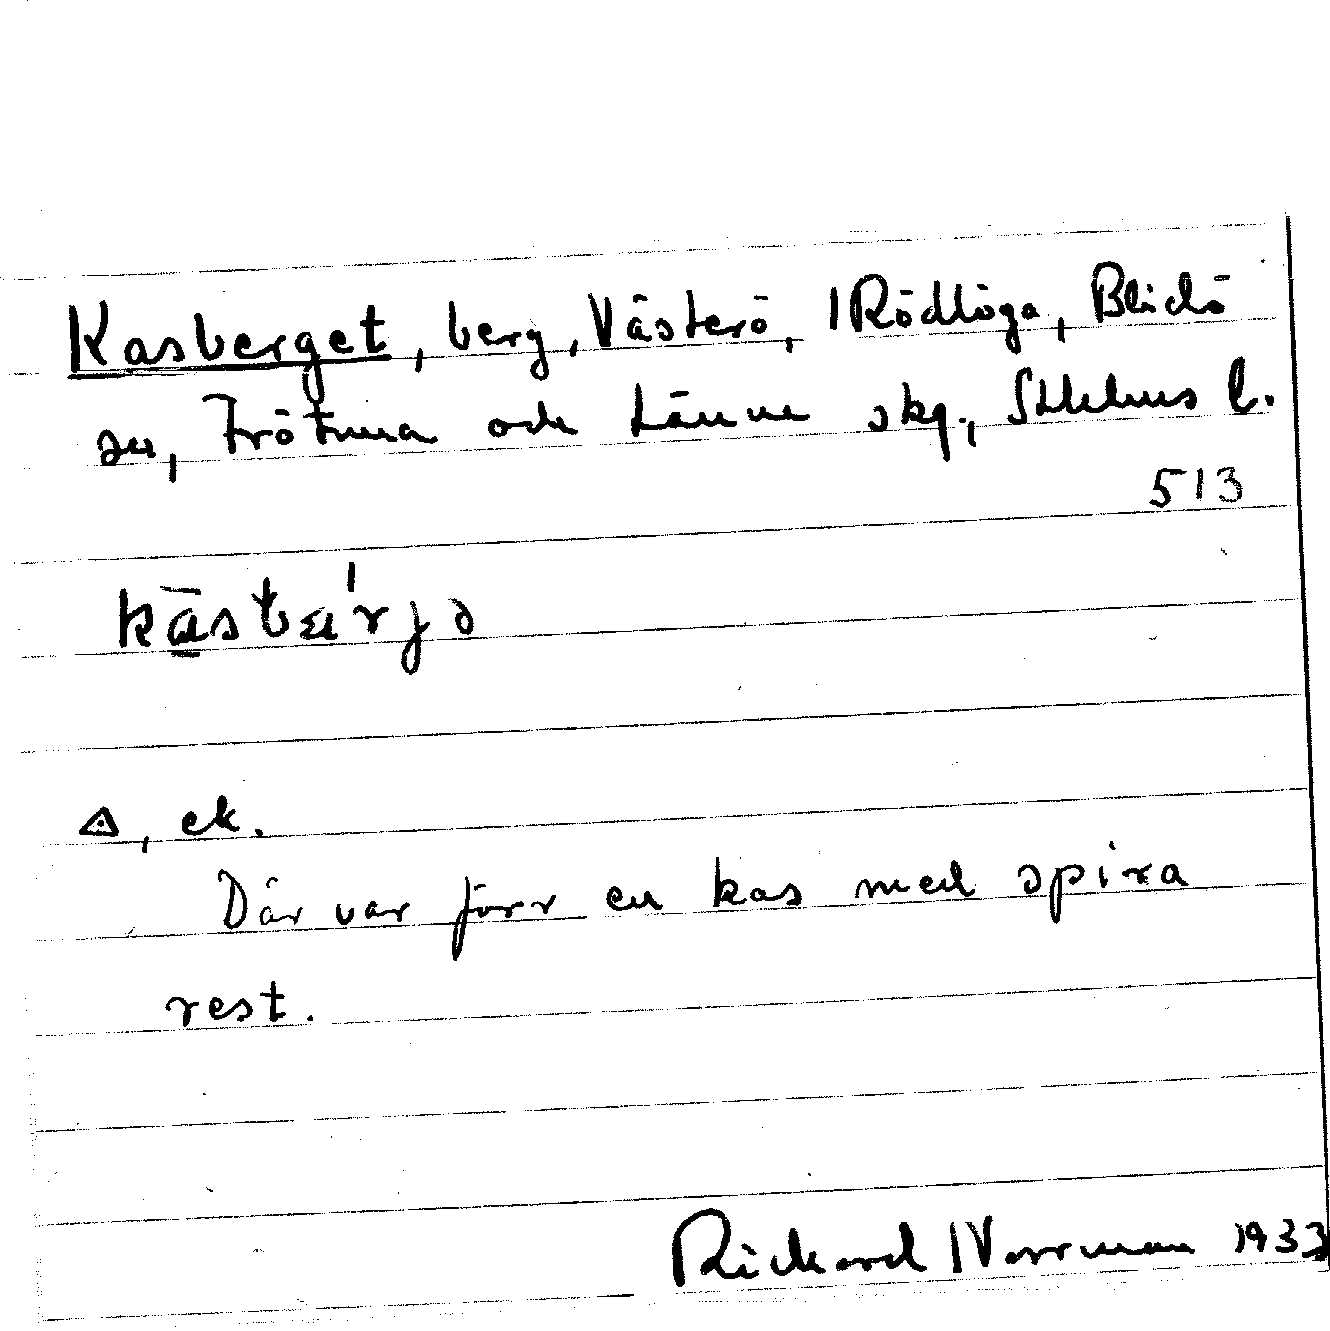 Kasberget, berg, Västerö, Rödlöga, Blidö
sn, Frötuna och Länna skg., Sthlms l.
513
kāstbæ'rjə
, ek.
Där var förr en kas med spira
rest.
Rickard Norrman 1933